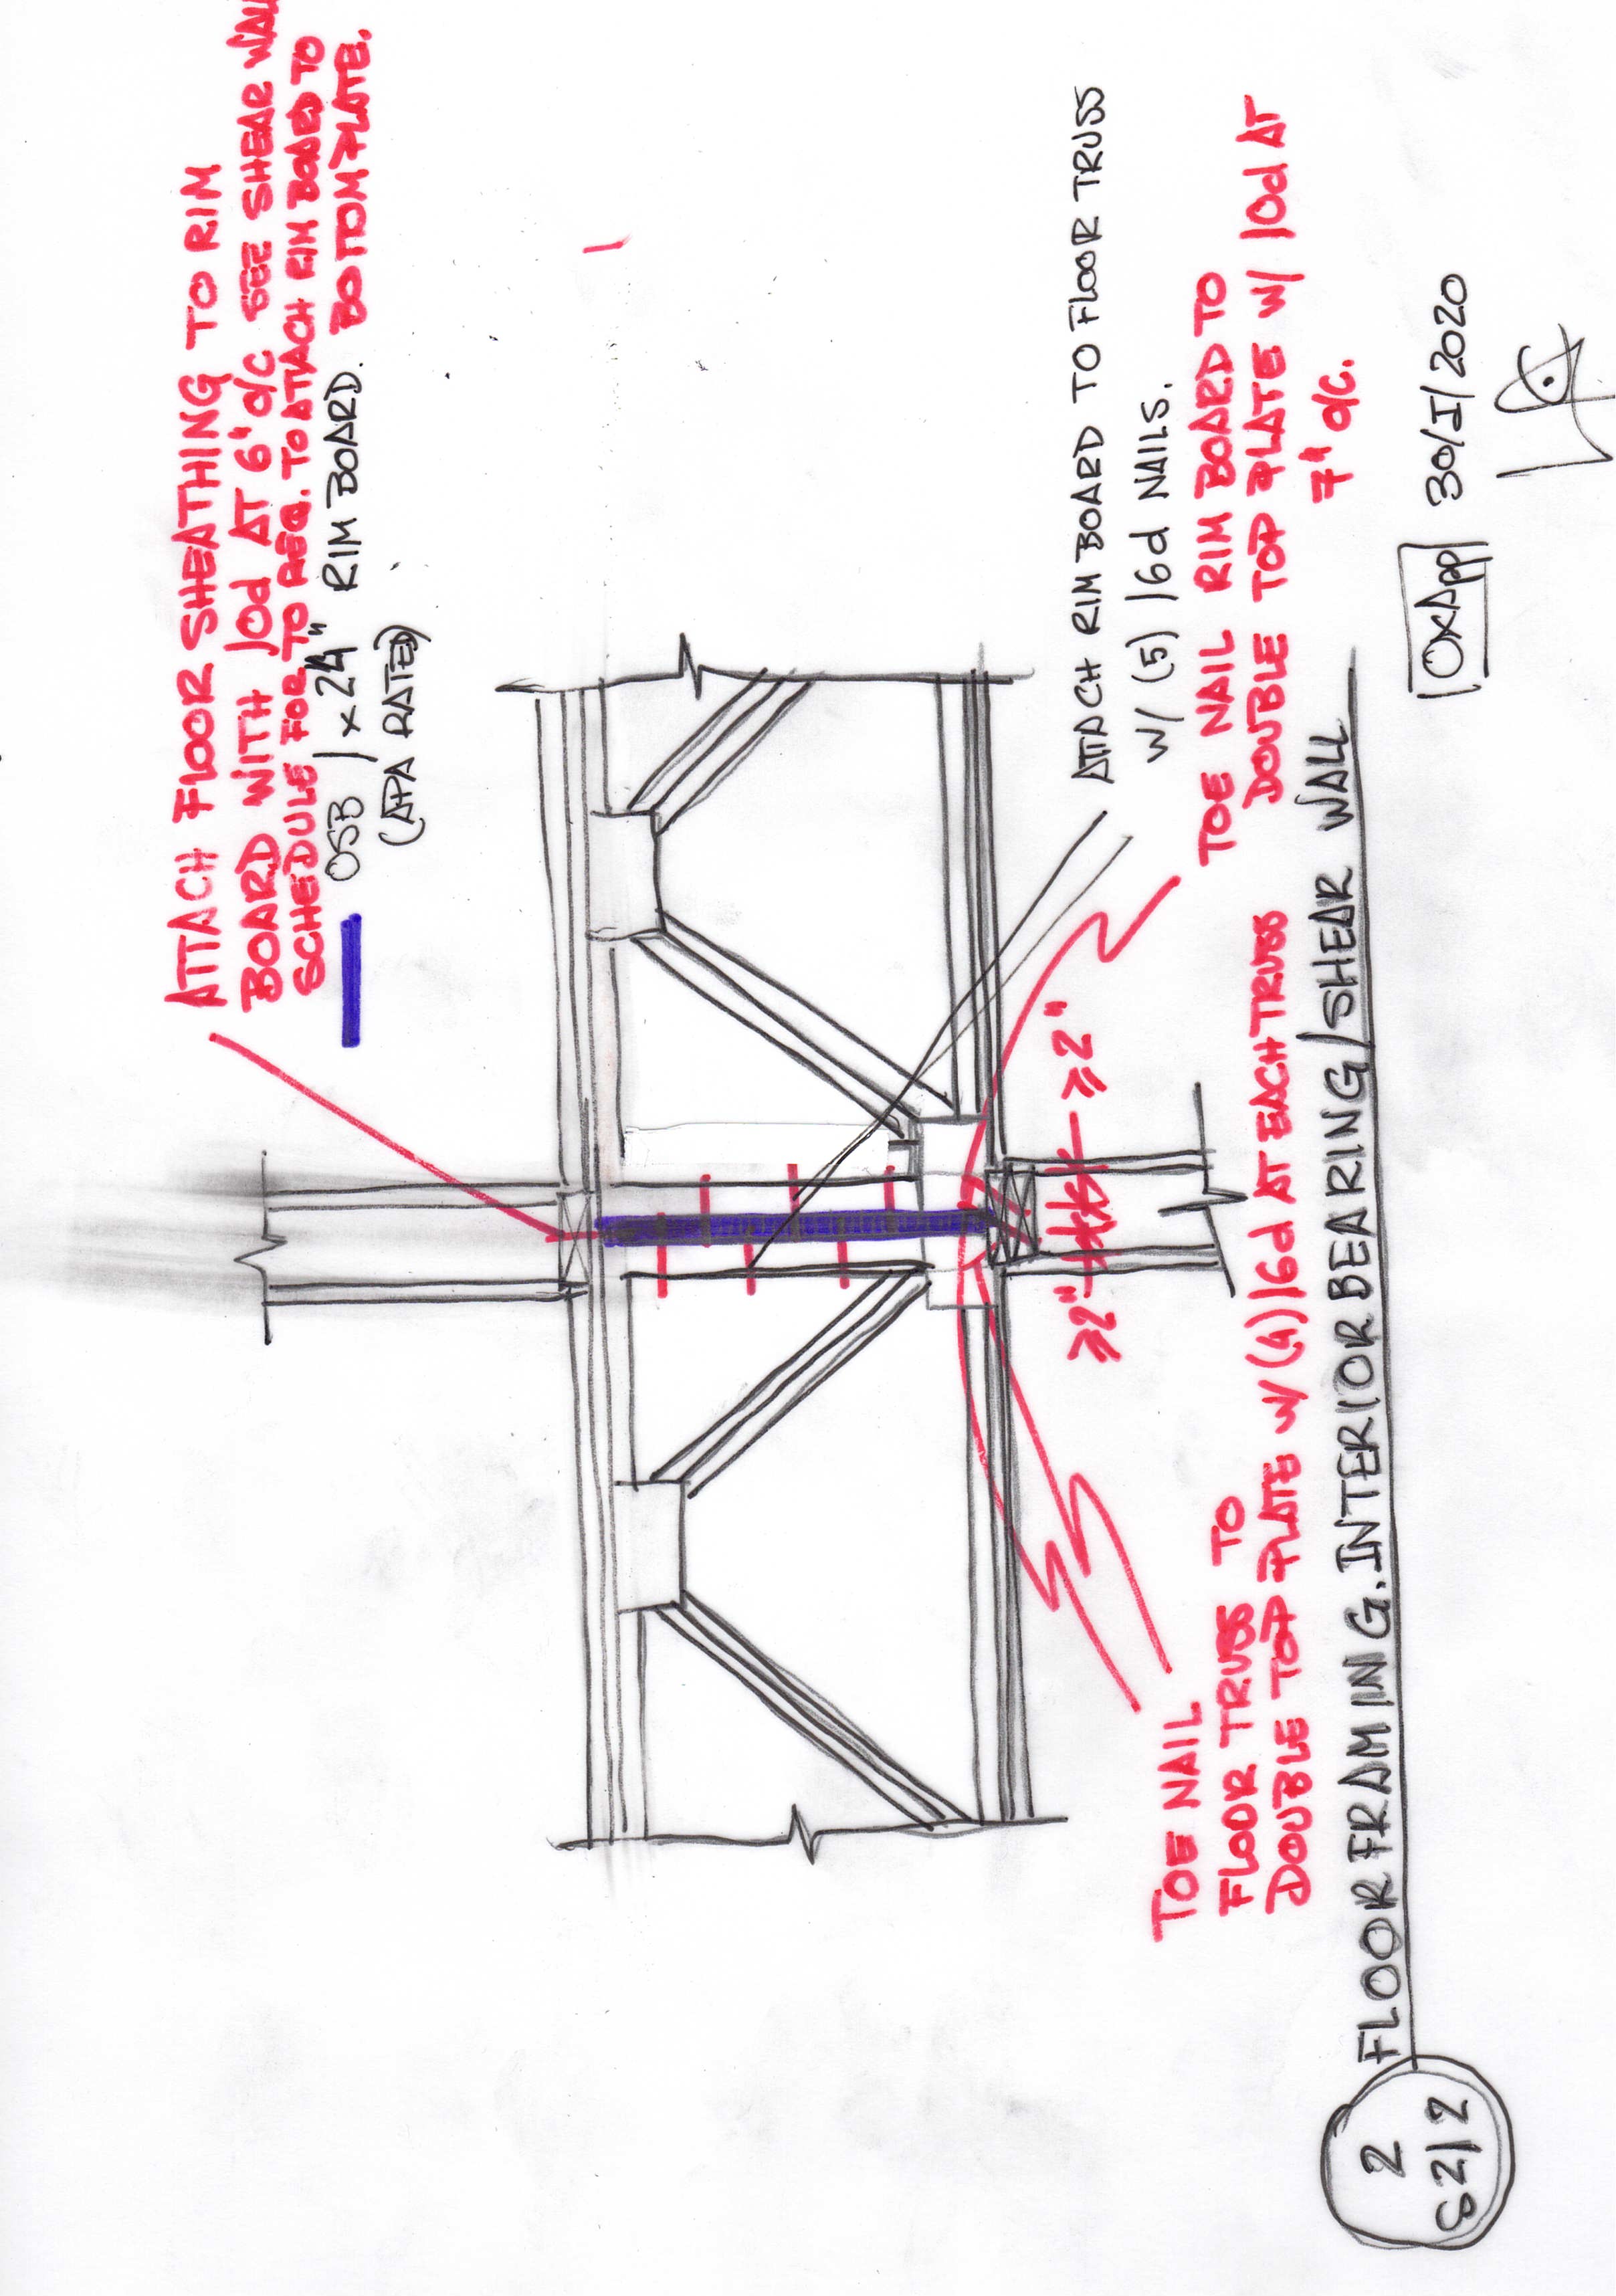 ATTACH FLOOR SHEATHING TO RIM
BOARD WITH 10d AT 6" O/C SEE SHEAR WALL
SCHEDULE FOR TO REQ. TO ATTACH RIM BOARD TO
BOTTOM PLATE.
OSB 1 x 24" RIM BOARD.
(APA RATED)
ATTACH RIM BOARD TO FLOOR TRUSS
W/ (5) 16d NAILS.
TOE NAIL RIM BOARD TO
DOUBLE TOP PLATE W/ 10d AT
7" O/C.
≥2"
≥2"
TOE NAIL
FLOOR TRUSS TO
DOUBLE TOP PLATE W/ (4) 16d AT EACH TRUSS
2
S212
FLOOR FRAMING. INTERIOR BEARING/SHEAR WALL
OXApp 30/I/2020